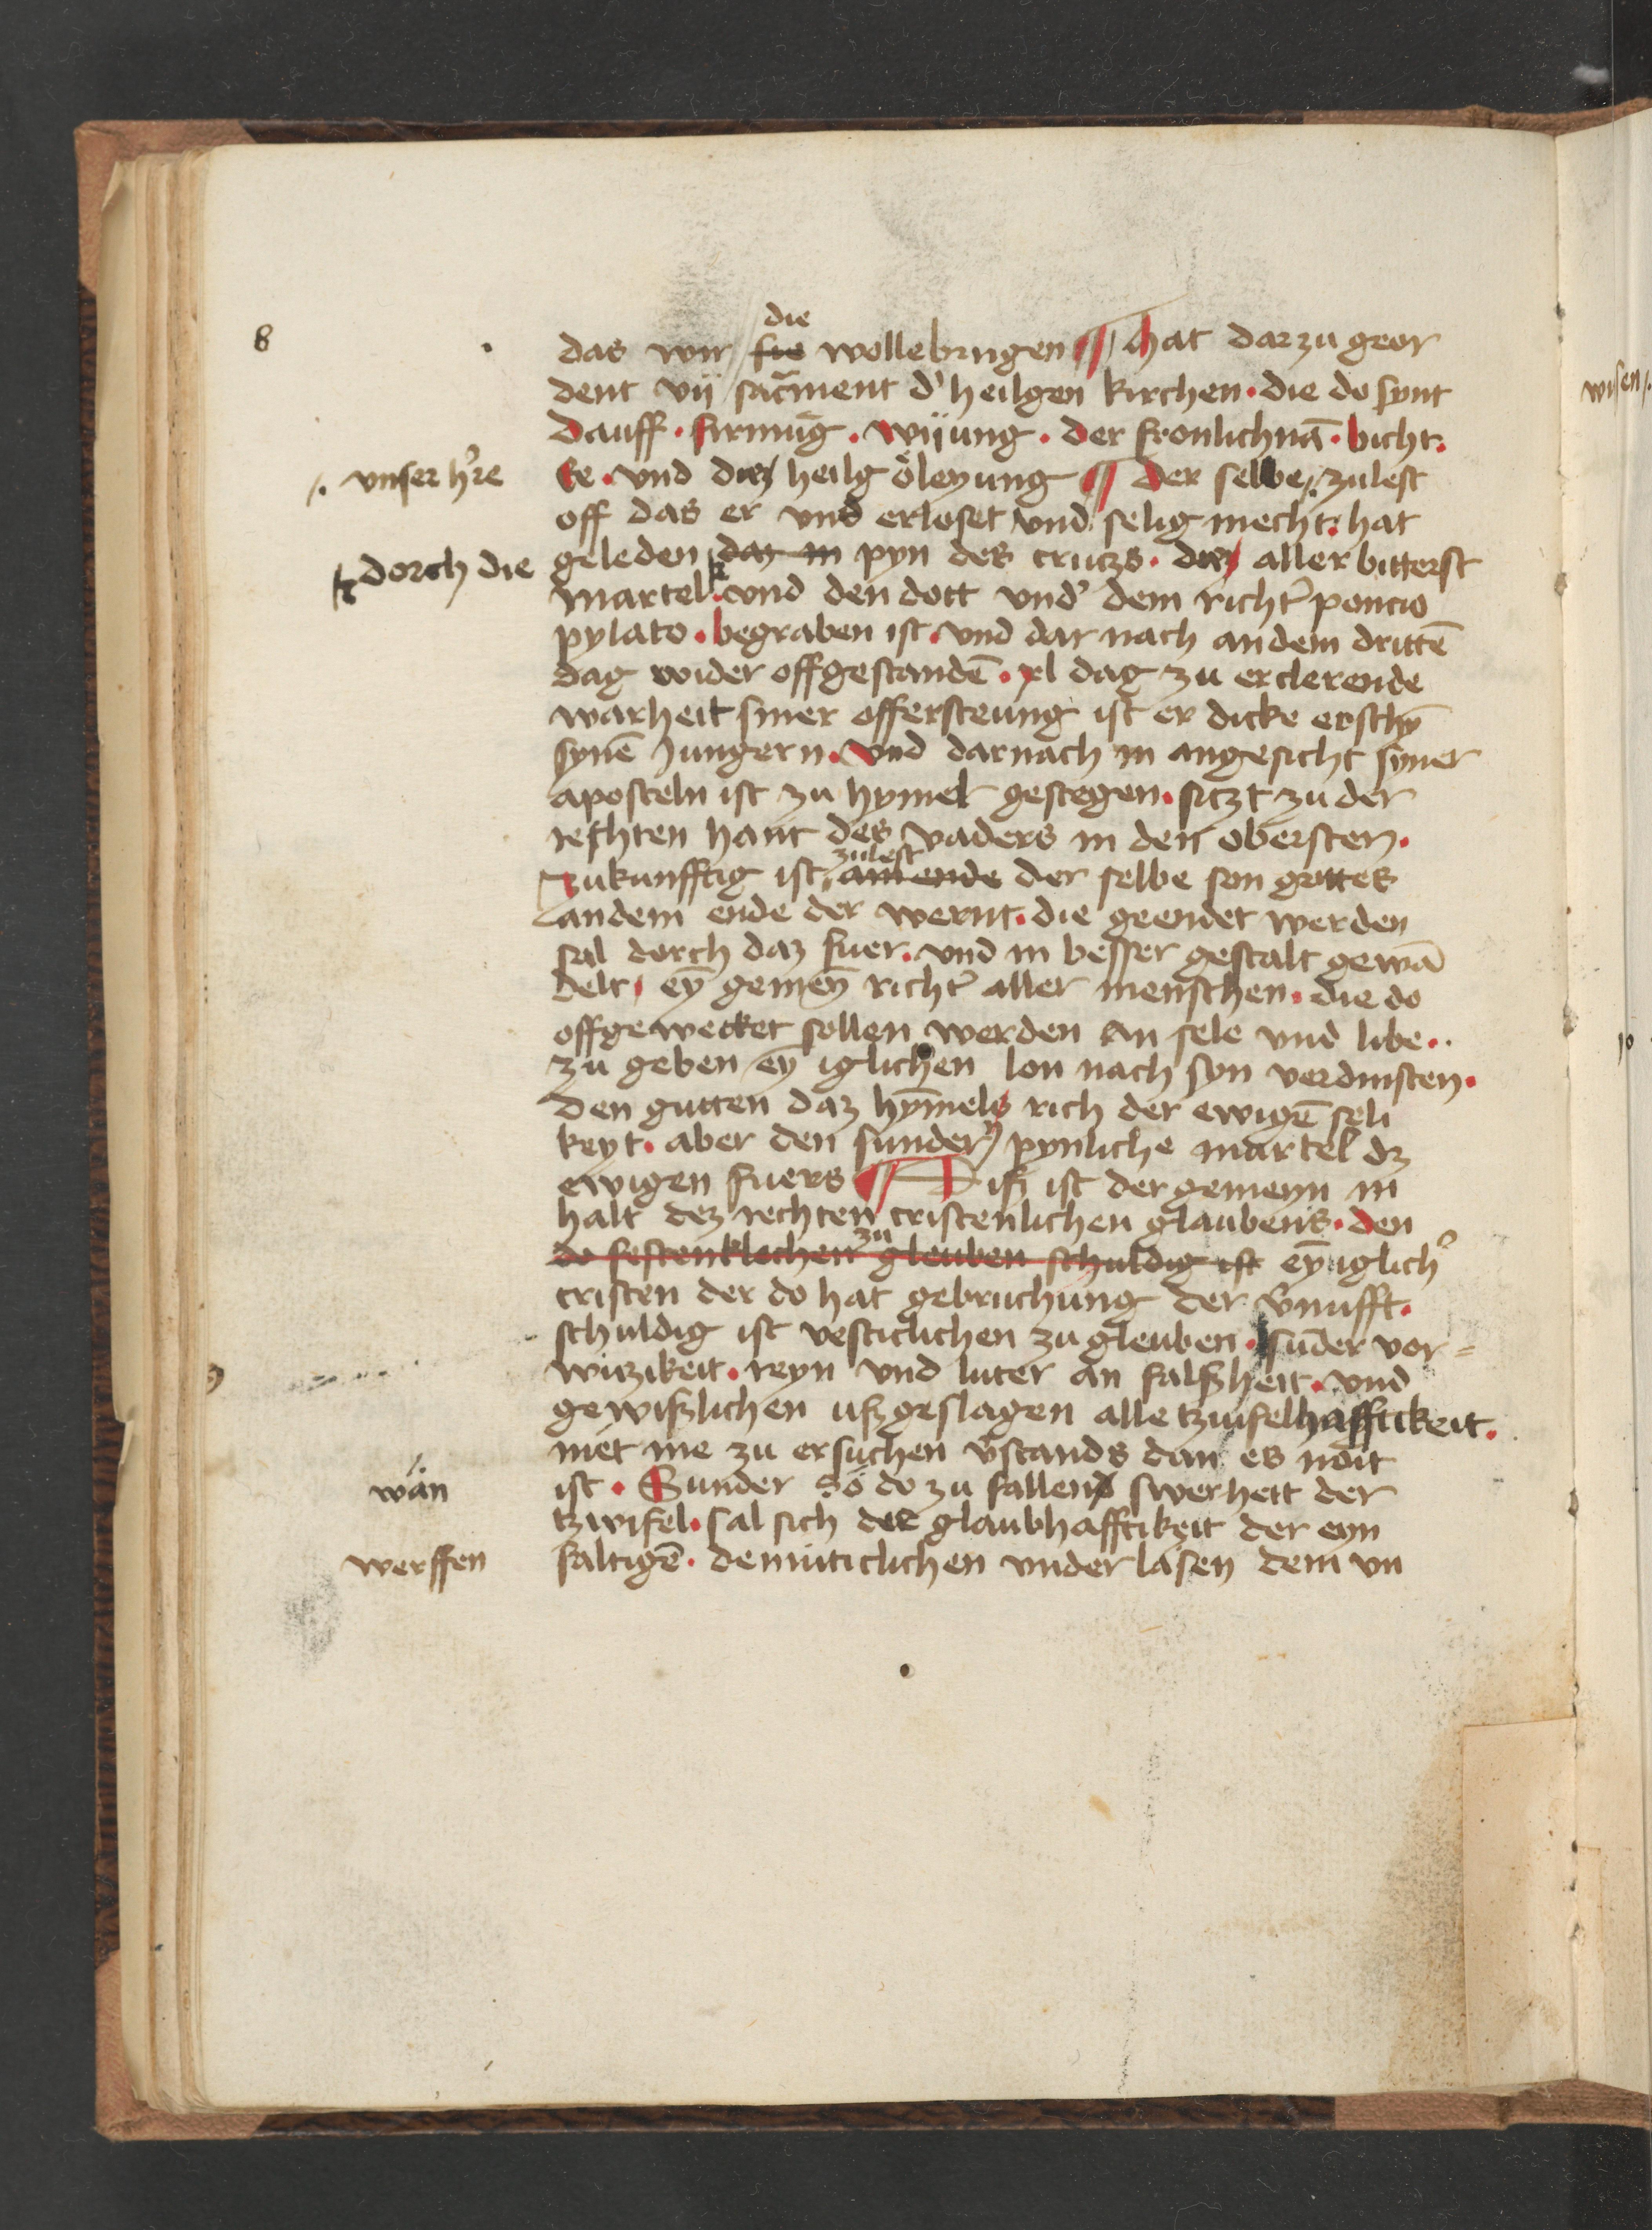 8
die
das wir sie wollebringen ¶ hat darzu geor
dent vij sacͬment dʼ heilgen kirchen · die do synt
Dauff · firmūg · wijung · der fronlichnā · bicht ·
./. vnser hʼre
Ee · vnd diez heilg öleyung ¶ Der selbe ./. zulest
off das er vns erloset vnd selig mecht · hat
dorch die
geleden daz in pyn des crutzs · diez aller bitterst
martel · vnd den dott vndʼ dem richtʼ poncio
pylato · begraben ist · vnd dar nach an dem drittē
dag wider offgestandē · xl dag zu erclerende
warheit siner offersteung ist er dicke erschȳ
synē Jungern · Vnd darnach in angesicht syner
aposteln ist zu hymel gestegen · sitzt zu der
rechten hant des vaders in den obersten ·
zulest
Zukunfftig ist am ende der selbe son gottes
an dem ende der wernt · die geendet werden
sal dorch daz fuer · vnd in besser gestalt gewā
delt / eȳ gemeȳ richtʼ aller menschen · die do
offgewecket sollen werden an sele vnd libe ··
zu geben eȳ iglichen lon nach syn verdinsten ·
Den gutten daz hȳmels rich der ewigē seli
keyt · aber den sundern pynliche martel dz
ewigen fuers ¶ Diß ist der gemeyn in
halt dez rechten cristenlichen glaubens · den
zu
do festenklichen gleuben schuldig ist eȳ iglichʼ
cristen der do hat gebruchung der v̄nufft ·
schuldig ist vesticlichen zu gleuben · sūder vor=
witzikeit · reyn vnd luter an falßheit · vnd
gewißlichen ußgeslagen alle tzwifelhafftikeit ·
niet me zu ersuchen v̄stands dan es noit
wän
ist · Sunder so do zu fallend swerheit der
tzwifel · sal sich der glaubhafftikeit der eyn
werffen
faltigē · demüticlichen vnder lasen dem vn
wisen /.
10